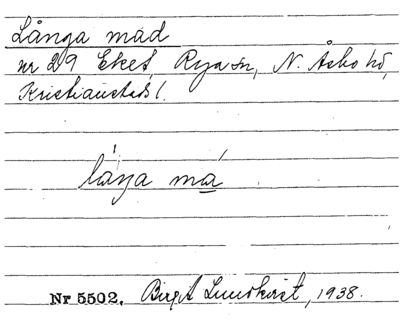 Långa mad
nr 29 Eket, Rya sn, N. Åsbo hd,
Kristianstads l.
låŋa ma
Nr 5502. Birgit Lundkvist, 1938.